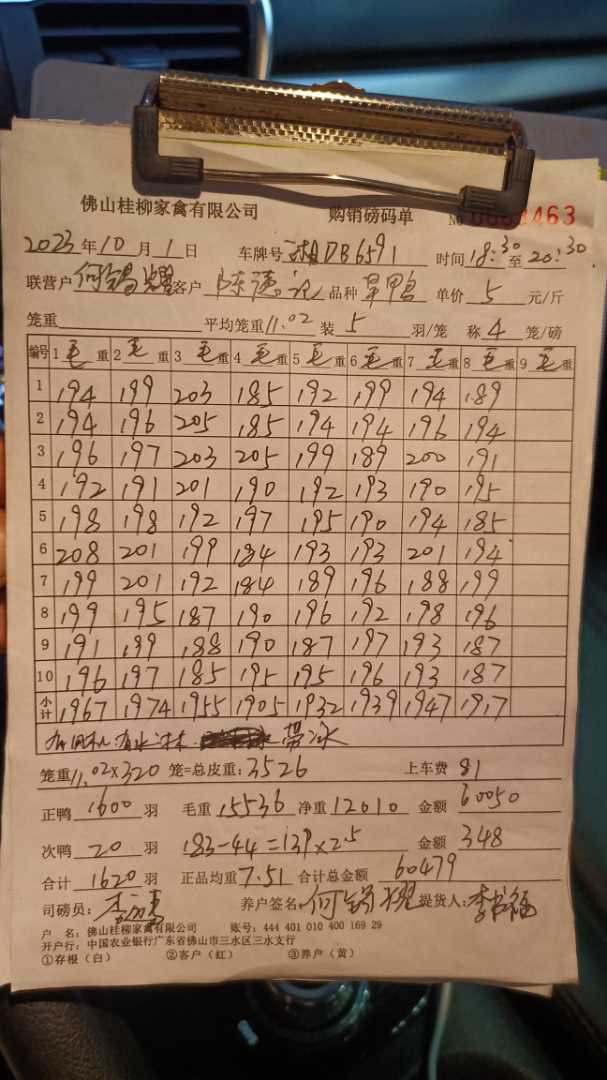 佛山桂柳家禽有限公司 购销磅码单 No 463
2023年10月1日 车牌号 DB6591 时间18:30至20:30
联营户 何锡耀 客户 陈德记 品种 旱鸭 单价 5 元/斤
笼重 平均笼重11.02 装 5 羽/笼 称 4 笼/磅
编号 1毛重 2毛重 3毛重 4毛重 5毛重 6毛重 7毛重 8毛重 9毛重
1 194 199 203 185 192 199 194 189
2 194 196 205 185 194 194 196 194
3 196 197 203 205 199 189 200 191
4 192 191 201 190 192 193 190 195
5 198 198 192 197 195 190 194 185
6 208 201 199 184 193 193 201 194
7 199 201 192 184 189 196 188 199
8 199 195 187 190 196 192 198 196
9 191 199 188 190 187 197 193 187
10 196 197 185 195 195 196 193 187
小计 1967 1974 1955 1905 1932 1939 1947 1917
带冰
笼重11.02×320 笼=总皮重:3526 上车费 81
正鸭 1600 羽 毛重 15536 净重 12010 金额 60050
次鸭 20 羽 183-44=139×2.5 金额 348
合计 1620 羽 正品均重7.51 合计总金额 60479
司磅员: 养户签名:何锡耀 提货人:李书福
户 名:佛山桂柳家禽有限公司 账号:444 401 010 400 169 29
开户行:中国农业银行广东省佛山市三水区三水支行
①存根(白) ②客户(红) ③养户(黄)